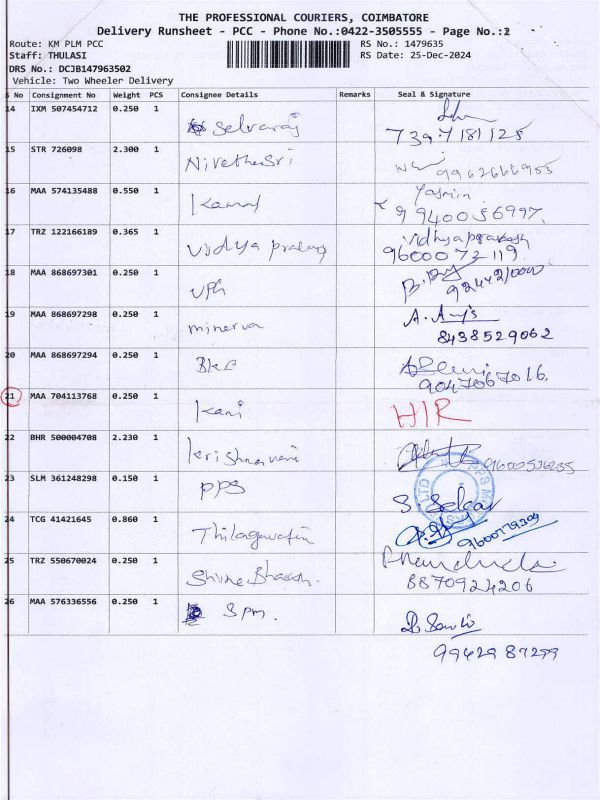 THE PROFESSIONAL COURIERS, COIMBATORE
Delivery Runsheet - PCC - Phone No.:0422-3505555 - Page No.:2
Route: KM PLM PCC RS No.: 1479635
Staff: THULASI RS Date: 25-Dec-2024
DRS No.: DCJB147963502
Vehicle: Two Wheeler Delivery
S No Consignment No Weight PCS Consignee Details Remarks Seal & Signature
14 IXM 507454712 0.250 1 Selvaraj
7397181125
15 STR 726098 2.300 1 Nivethasri 9962666955
16 MAA 574135488 0.550 1 Kamal Yasmin
9940056997
17 TRZ 122166189 0.365 1 Vidya prakash Vidhyaprakash
9600072119
18 MAA 868697301 0.250 1
19 MAA 868697298 0.250 1 minerva
8438529062
20 MAA 868697294 0.250 1
9047067016
21 MAA 704113768 0.250 1 Kani HIR
22 BHR 500004708 2.230 1 Krishnaveni
23 SLM 361248298 0.150 1 PPS S
24 TCG 41421645 0.860 1
9600779309
25 TRZ 550670024 0.250 1 Shine
8870924206
26 MAA 576336556 0.250 1 Spm.
9942987299